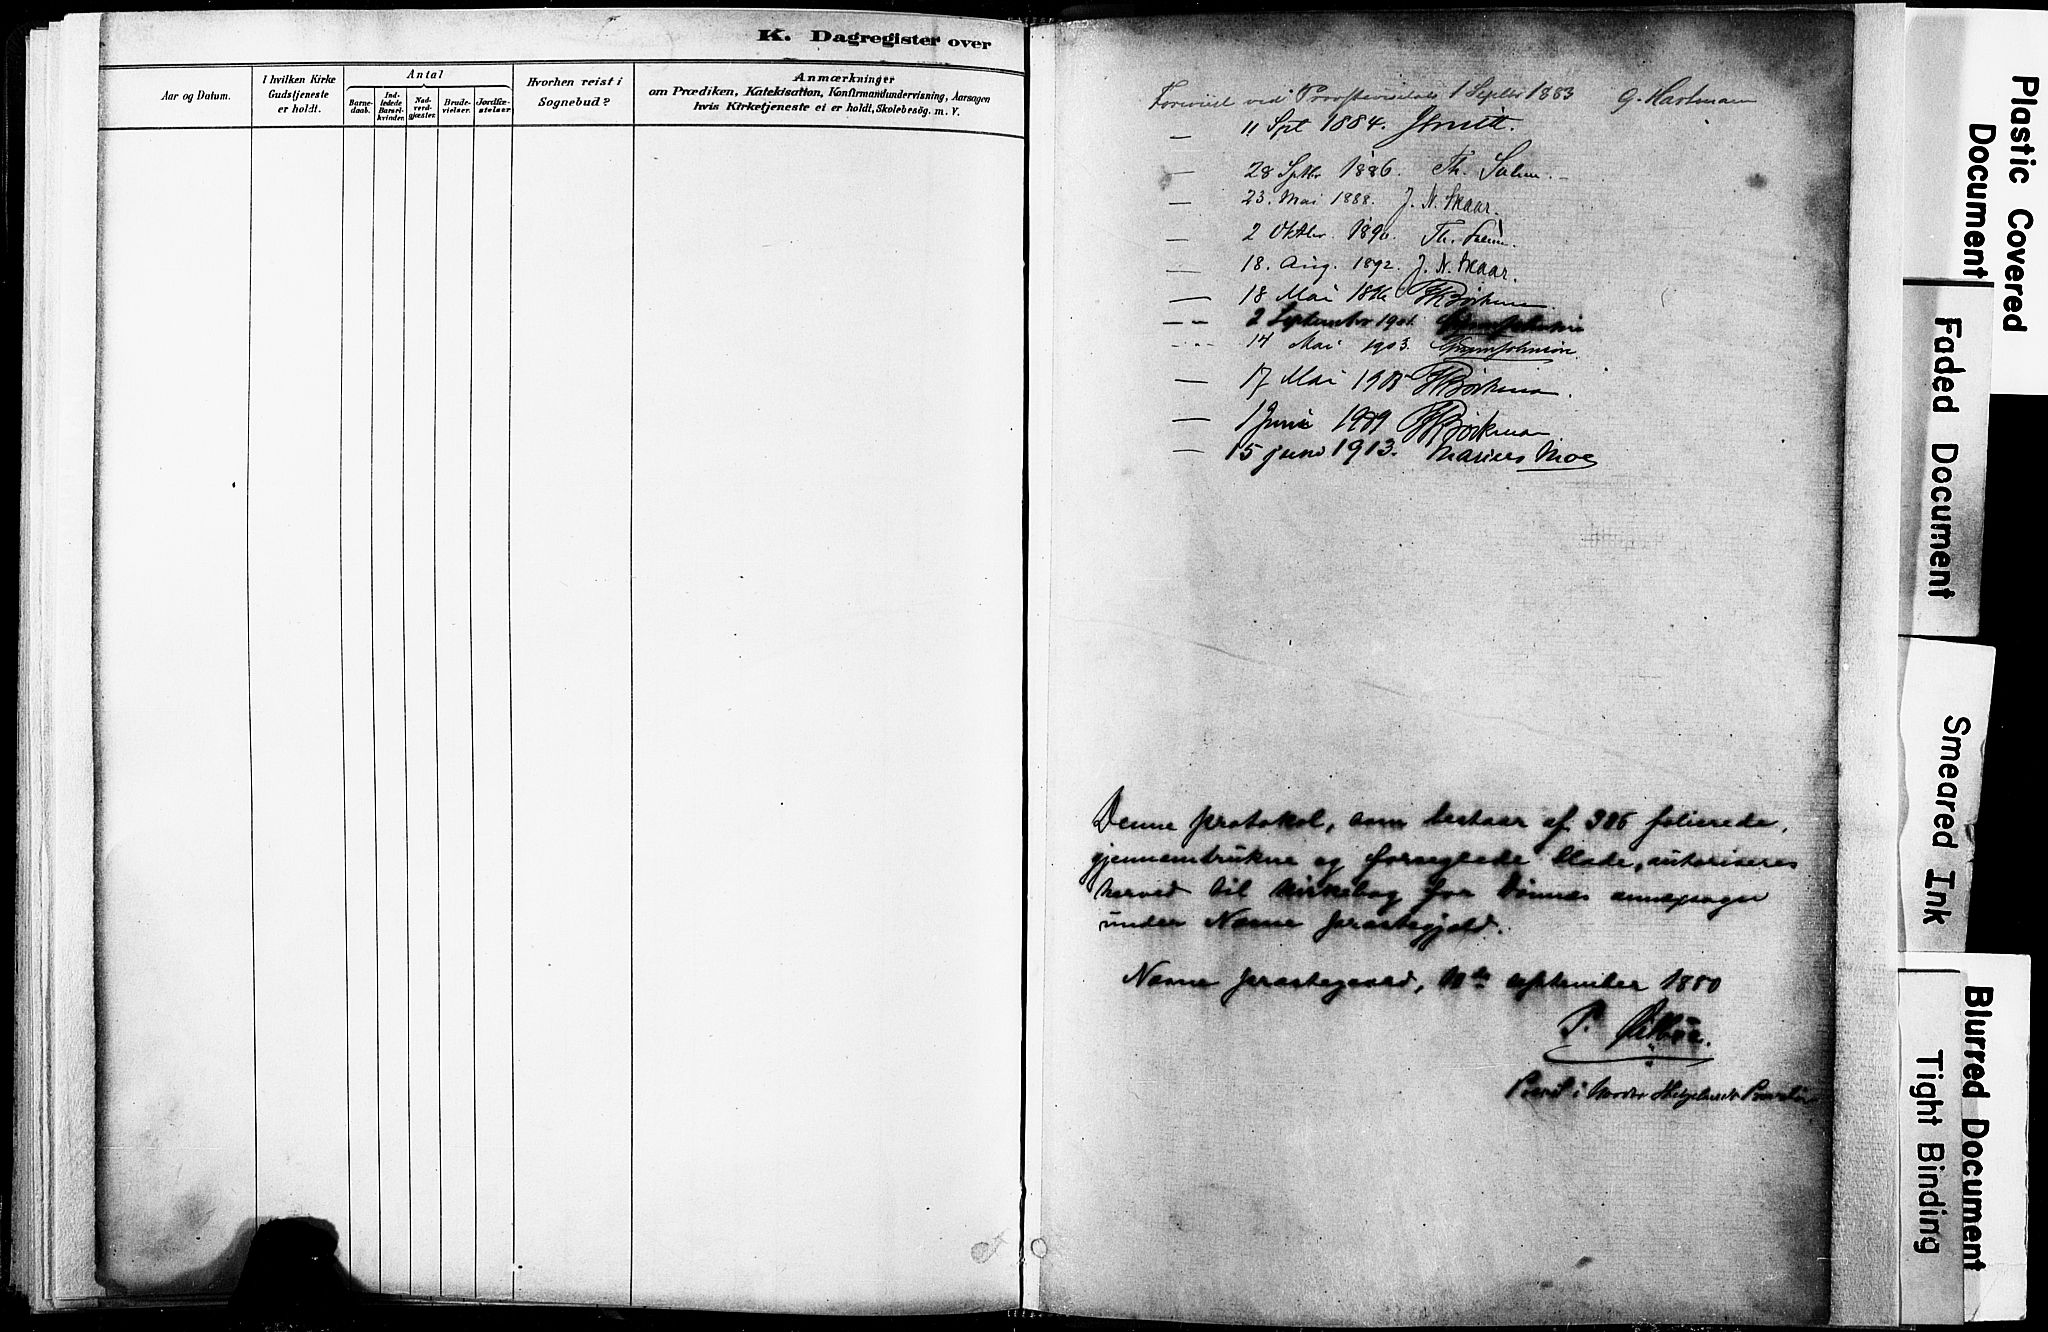 K. Dagregister over
Aar og Datum.
I hvilken Kirke
Gudstjeneste
er holdt.
Antal
Barne-
daab.
Ind-
ledede
Barsel-
kvinder.
Nad-
verd-
gjæster.
Brude-
vielser.
Jordfæ-
stelser.
Hvorhen reist i
Sognebud?
Anmærkninger
om Prædiken, Katekisation, Konfirmandundervisning, Aarsagen
hvis Kirketjeneste ei er holdt, Skolebesög. m. V.
Forevist ved Provstevisitats 1 Septbr 1883 G. Hartmann
— 11 Spt 1884.
— 28 Sptbr 1886. Th.
— 23. Mai 1888. J. N. Skaar.
— 2 Oktbr. 1890. Th.
— 18. Aug. 1892. J. N. Skaar.
— 18 Mai
— — 2 September 1901.
- - - 14 Mai 1903.
— 17 Mai
— 1 Juni 1909
— 15 juni 1913. Marius Moe
Denne protokol, som bestaar af folierede,
gjennemtrukne og forseglede blade, autoriseres
herved til kirkebog for Dønnes annexsogn
under Nesne præstegjeld.
Nesne præstegaard, september 1880
P.
Provst i Nordre Helgelands Provsti
Plastic Covered
Document
Faded Document
Smeared Ink
Blurred Document
Tight Binding